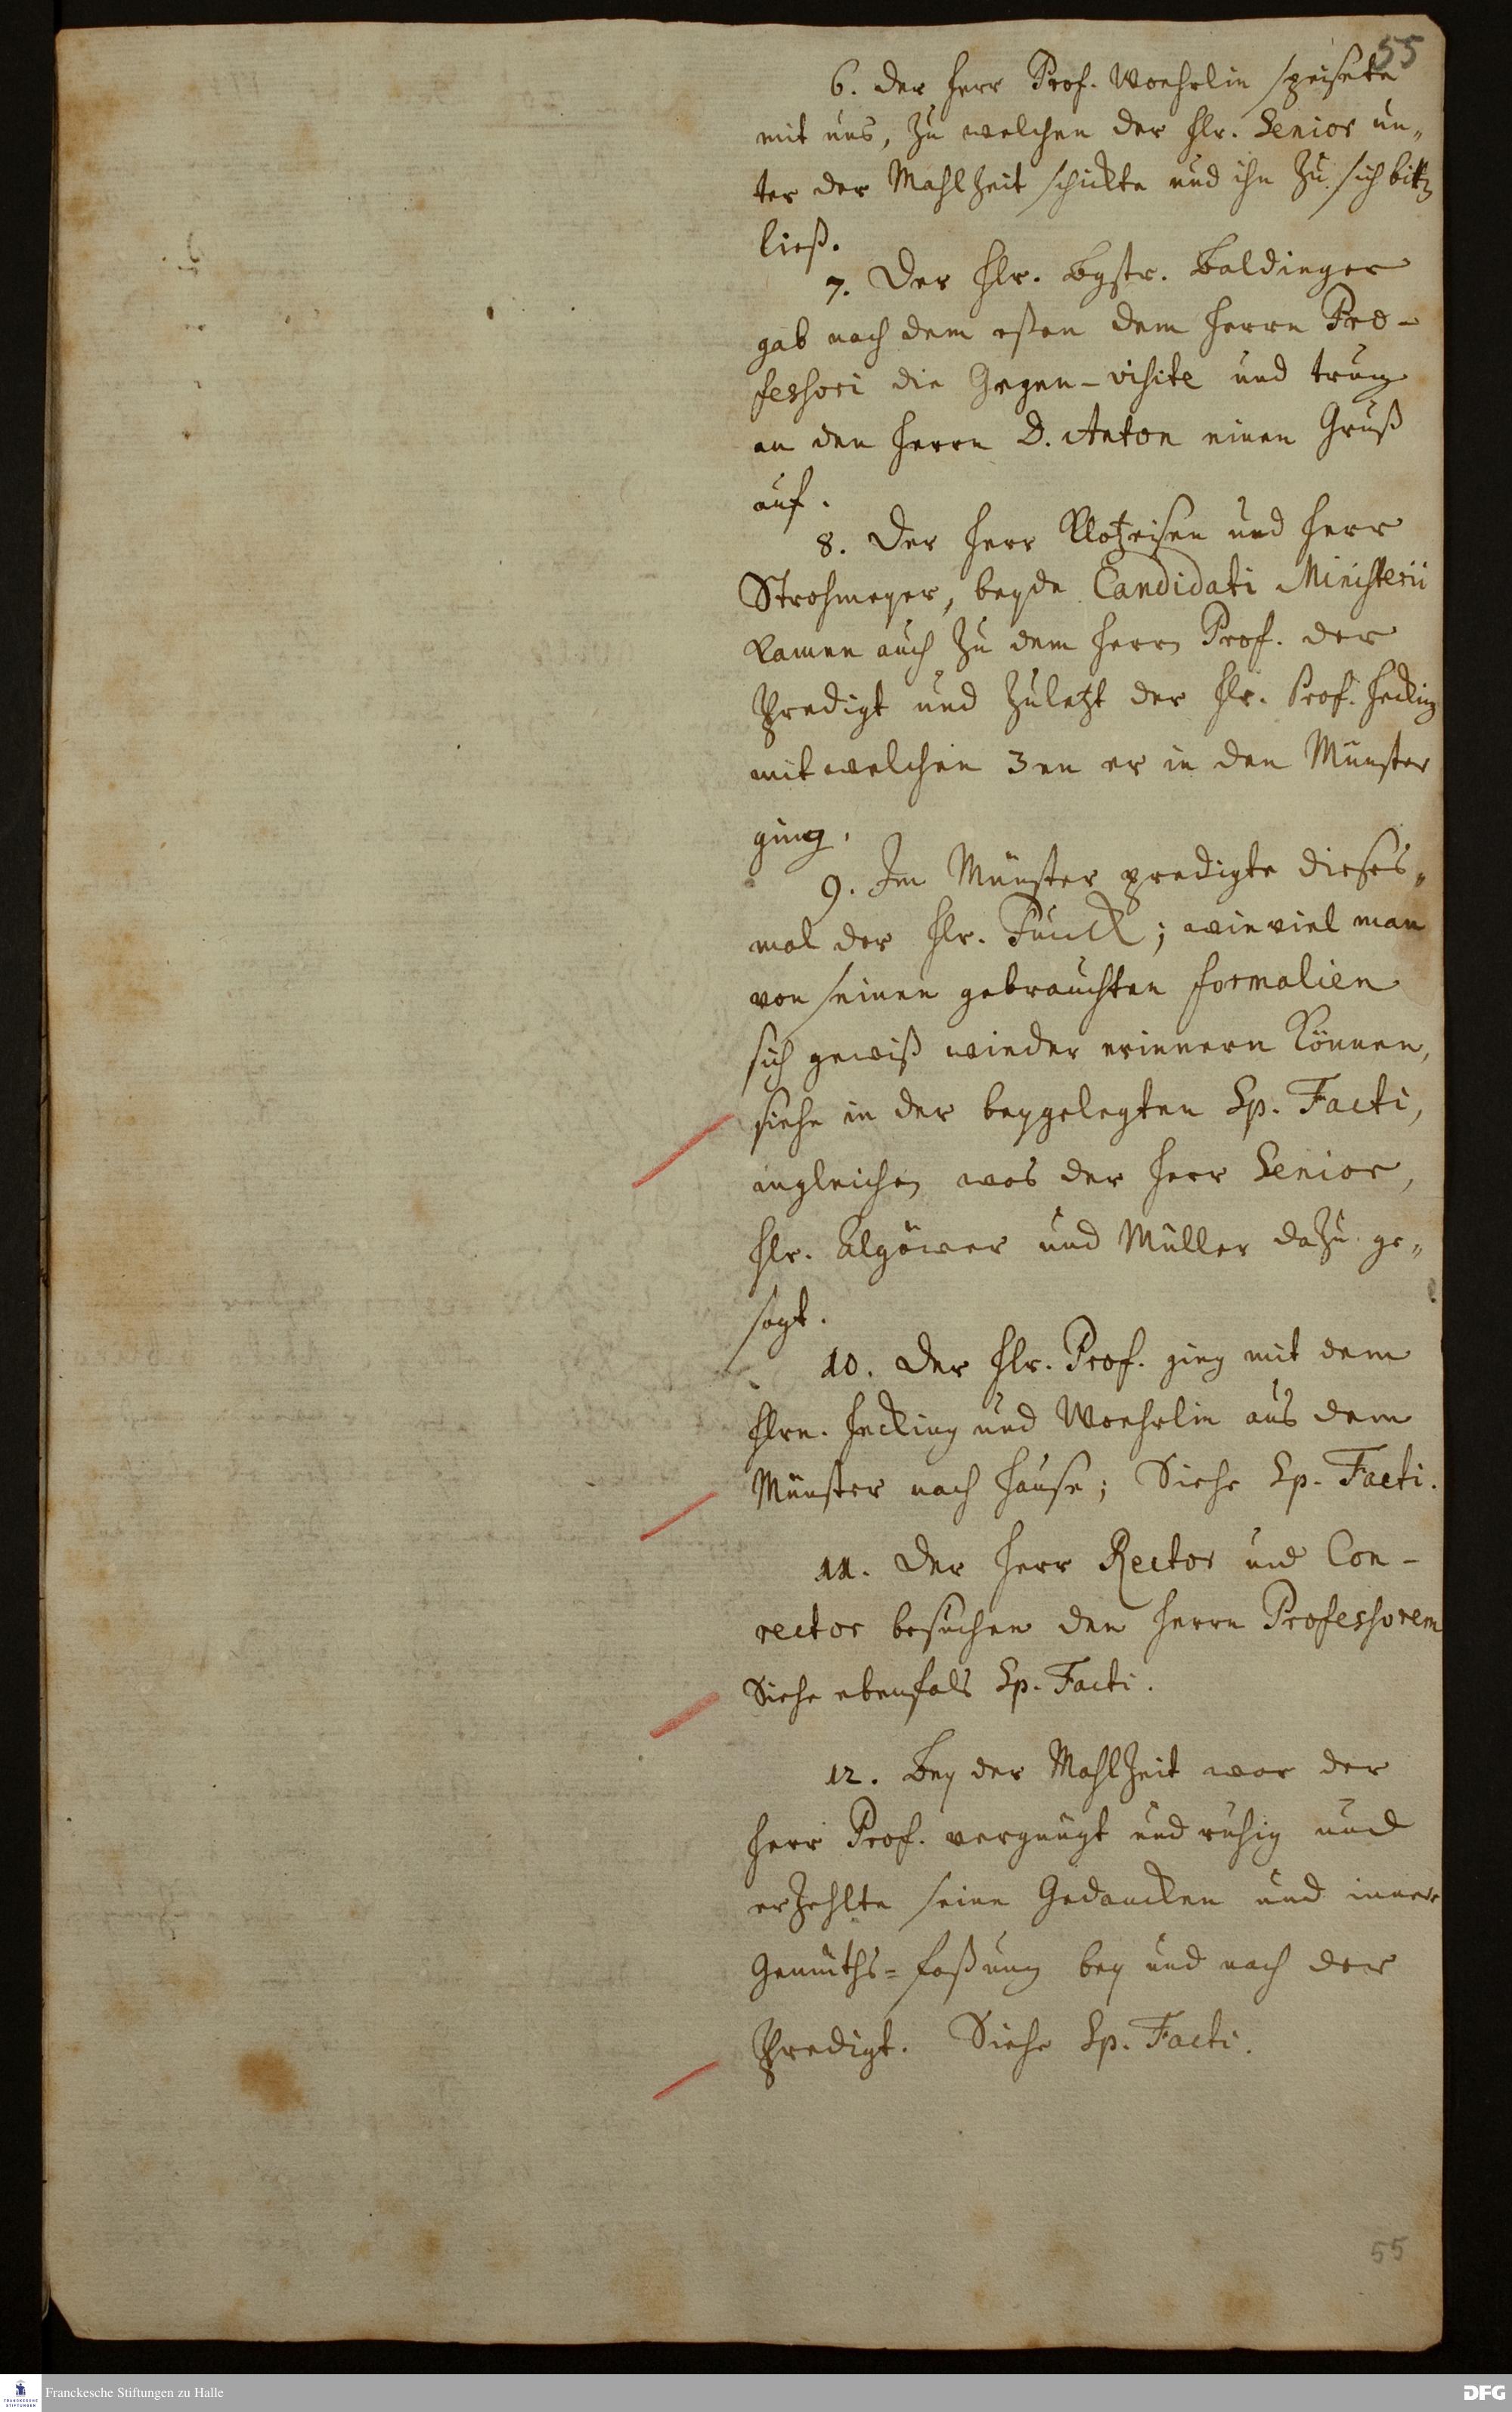 55
6. der Herr Prof. Woehrlin speisete
mit uns, zu welchen der Hr. Senior un„
ter der Mahlzeit schickte und ihn zu sich bitten
ließ.
7. Der Hr. Bgstr. Baldinger
gab nach dem eßen dem Herrn Pro-
fessori die Gegen-visite und trug
an den Herrn D. Anton einen Gruß
auf.
8. Der Herr Klotzeisen und Herr
Strohmeyer, beyde Candidati Ministerii
kamen auch zu dem Herrn Prof. der
Predigt und zuletzt der Hr. Prof. Hecking
mit welchen 3en er in den Münster
ging.
9. Im Münster predigte dieses„
mal der Hr. Funck; wie viel man
von seinen gebrauchten formalien
sich gewiß wieder erinnern können,
siehe in der beygelegten Sp. Facti,
ingleichen was der Herr Senior,
Hr. Algöwer und Müller dazu ge„
sagt.
10. Der Hr. Prof. ging mit dem
Hrn. Hecking und Woehrlin aus dem
Münster nach Hause; Siehe Sp. Facti.
11. Der Herr Rector und Con-
rector besuchen den Herrn Professorem
Siehe ebenfals Sp. Facti.
12. Bey der Mahlzeit war der
Herr Prof. vergnügt und ruhig und
erzehlte seine Gedancken und innere
Gemüths=faßung bey und nach der
Predigt. Siehe Sp. Facti.
55
Franckesche Stiftungen zu Halle
DFG